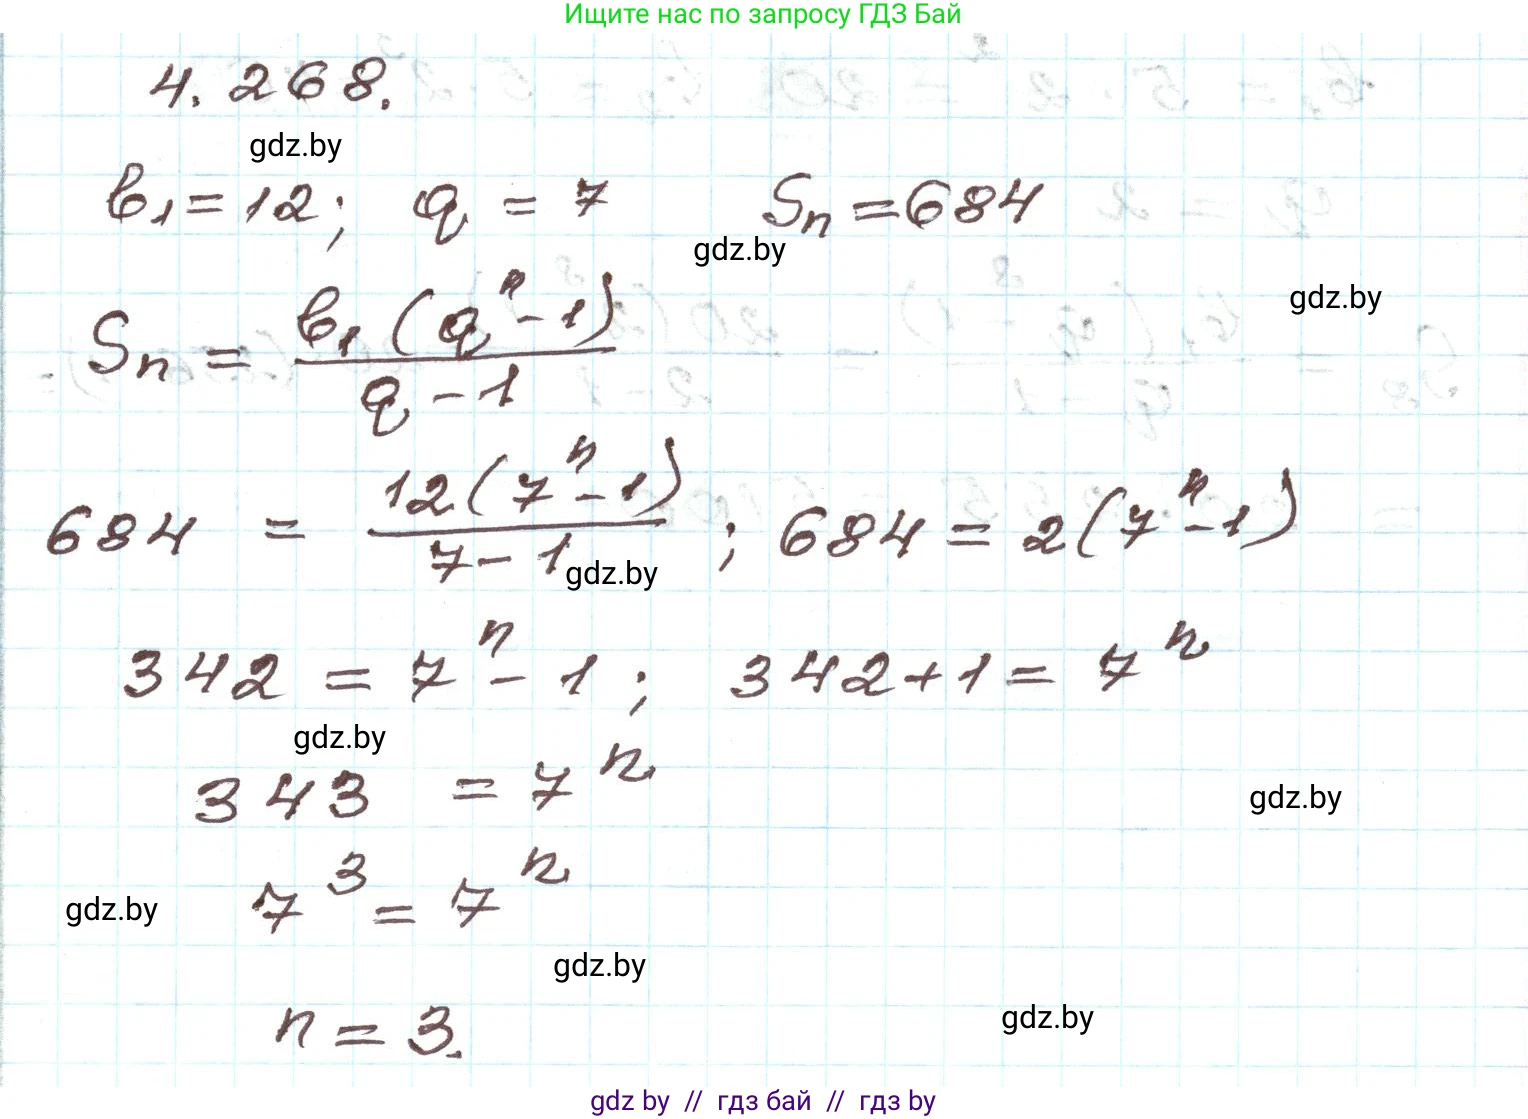 Ищите нас по запросу ГДЗ Бай
4.268.
gdz.by
b₁ = 12; q = 7 Sₙ = 684
gdz.by
gdz.by
Sₙ = b₁(qⁿ - 1) / (q - 1)
684 = 12(7ⁿ - 1) / (7 - 1); 684 = 2(7ⁿ - 1)
gdz.by
342 = 7ⁿ - 1; 342 + 1 = 7ⁿ
gdz.by
343 = 7ⁿ
gdz.by
7³ = 7ⁿ
gdz.by
gdz.by
n = 3.
gdz.by
gdz by // гдз бай // гдз by